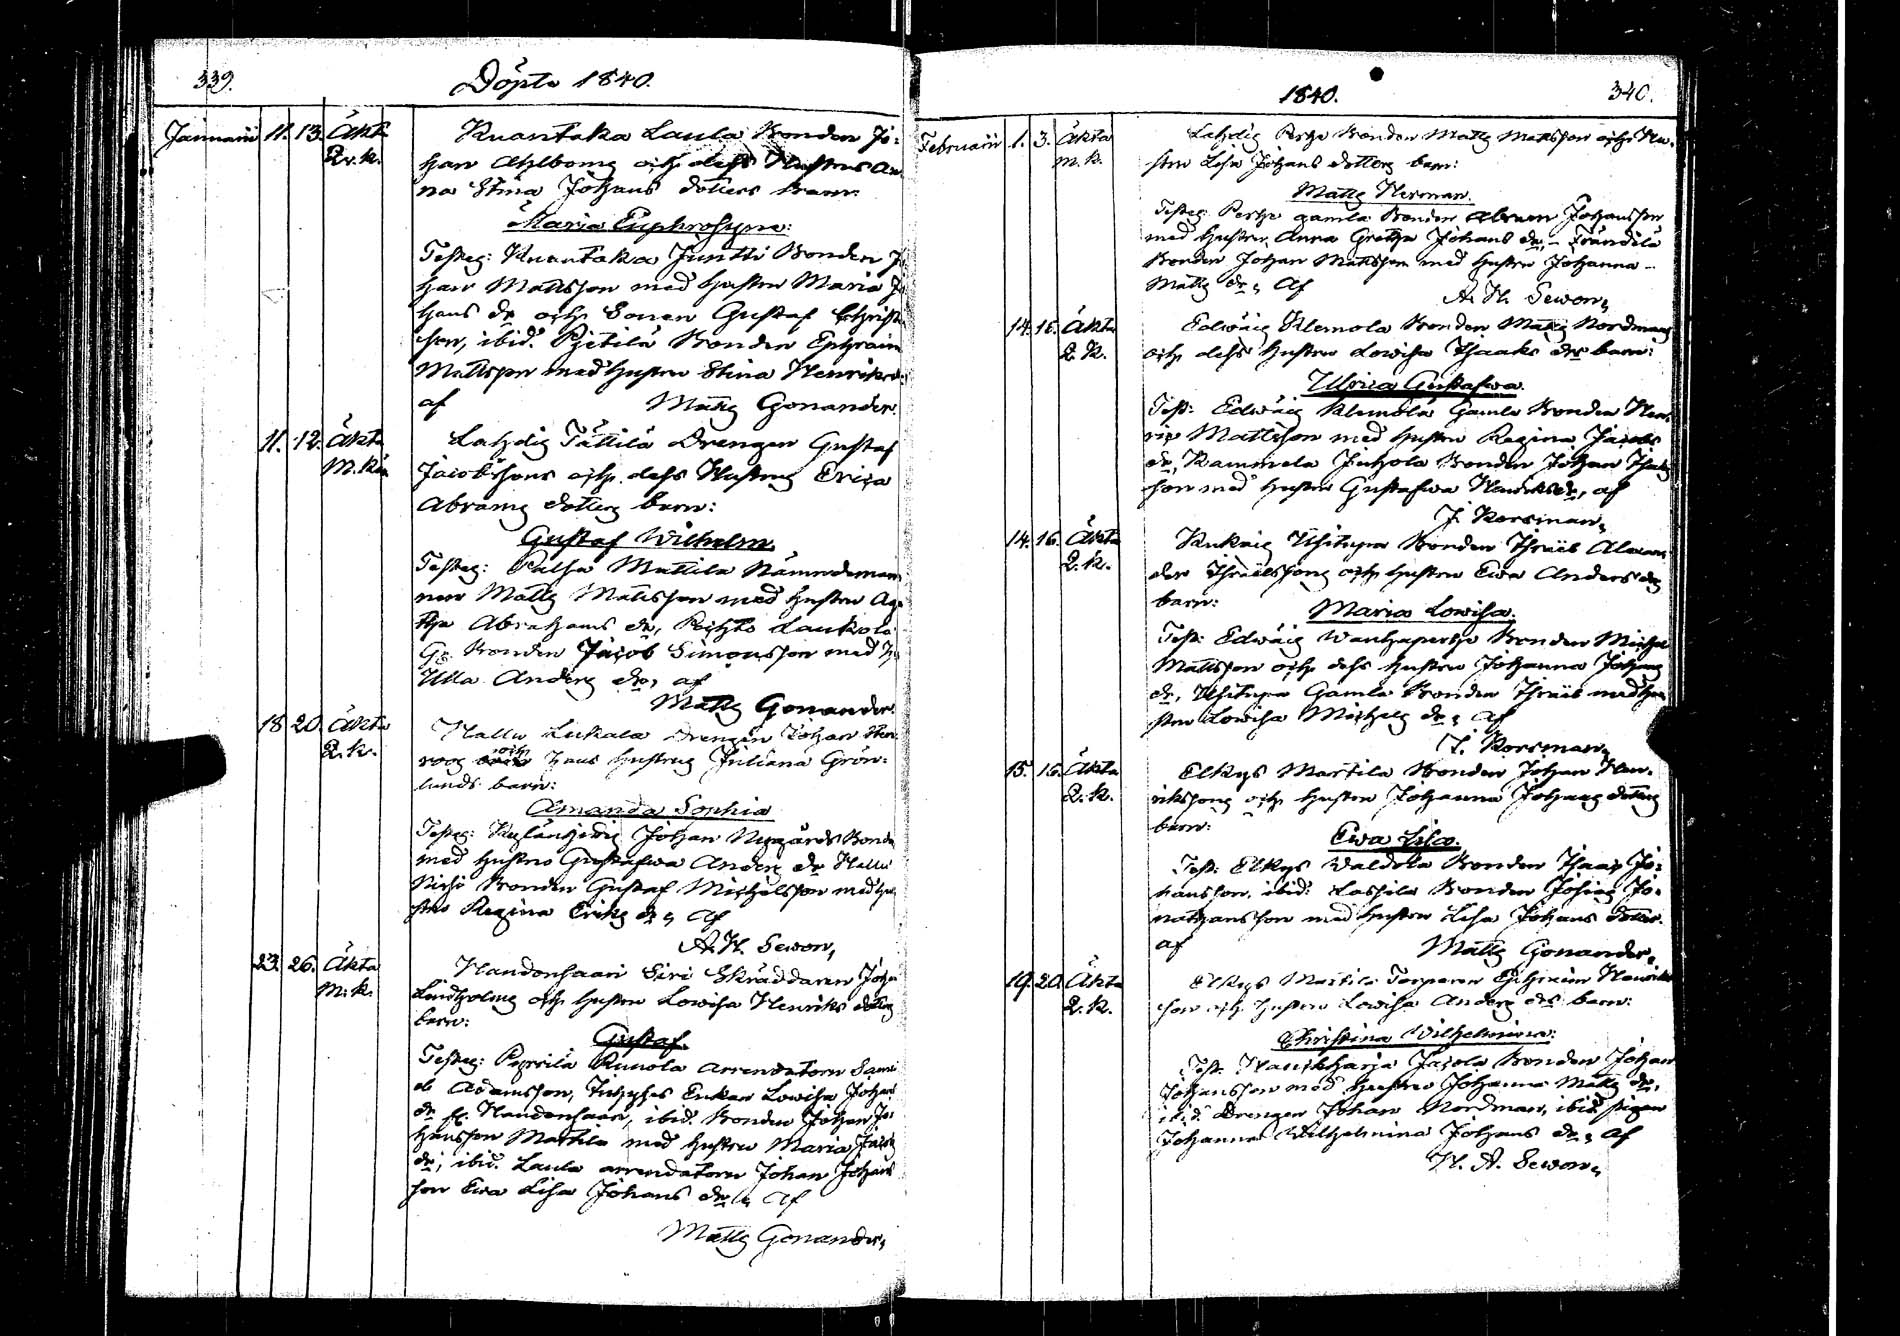 339.
Döpta 1840.
Januarii 11. 13. Äkta Kuantaka Laula Bonden Jo-
Q. k. han Ahlbomg och dess Hustrus An-
na Stina Johans dotters barn:
Maria Euphrosyne:
Testeg: Kuantaka Juntti Bonden
han Mattsson med hustru Maria
hans dr och Sonen Gustaf
son, ibid. Pjetilä Bonden Ephraim
Mattsson med hustru Stina Henriks
af Mattg Gonander.
11. 12. Äkta Lahdig Tättilä Drengen Gustaf
M. Kön Jacobssons och dess Hustrug Erica
Abramg dotterg barn:
Gustaf Wilhelm.
Testeg: Palsa Mattila Nämndeman
nen Mattg Mattsson med hustru
Abrahams dr, Laukola
Bonden Jacob Simonsson med
Ulla Anderg dr, af
Mattg Gonander.
18 20. Äkta Hallu Lukala Drengen Johan
Q. k. roos och hans hustrug Juliana Grön-
lunds barn:
Amanda Sophia
Testeg: Johan Nygårds Bonde
med hustru Gustafwa Anderg dr Hallu
Bonden Gustaf Michelsson med hu-
stru Regina Erikg dr, af
A. H. Sewon,
23. 26. Äkta Handonsaari Siri Skräddaren Joha
M. k. Lindholmg och hustru Lowisa Henriks dotterg
barn:
Gustaf.
Testeg: Pyssilä Runola arrendatorn Sam-
el Adamsson, Enkan Lowisa Johans
dr fr. Handonsaari, ibid. Bonden Johan Jo-
hansson Mattila med hustru Maria
dr; ibid. Laula arrendatorn Johan Johans
son Ewa Lisa Johans dr, af
Mattg Gonander,
1840. 340.
Februarii 1. 3. Äkta Lahdig Pertze Bonden Mattg Mattsson och Hu-
m. k. stru Lisa Johans dotterg barn:
Mattg Herman.
Testeg: Pertze gamla Bonden Abram Johansson
med hustru Anna Gretha Johans dr, Fränlilä
Bonden Johan Mattsson med hustru Johanna
Mattg dr, af
A. H. Sewon,
14. 16. Äkta Edwäig Klemola Bonden Mattg Nordmang
Q. K. och dess hustru Lowisa Isaaks drs barn:
Ulrica Gustafwa.
Test: Edwäig Klemola Gamla Bonden Hen-
ric Mattsson med hustru Regina Jacobs
dr, Kammola Juhola Bonden Johan Isak-
son med hustru Gustafwa Henriksdr, af
J. Korsman,
14. 16. Äkta Kukaig Uhitupa Bonden Israel Alexan-
Q. k. der Israelssong och hustru Ewa Anders drg
barn:
Maria Lowisa.
Test: Edwäig Wanhapertze Bonden Michel
Mattsson och dess hustru Johanna Johang
dr, Uhitupa Gamla Bonden Israel med hu-
stru Lowisa Michelg dr, af
J. Korsman,
15. 16. Äkta Elkys Martila Bonden Johan Hen-
Q. k. rikssong och hustru Johanna Johang dotterg
barn:
Ewa Lisa.
Test: Elkys Waldola Bonden Isaac Jo-
hansson, ibid: Lassila Bonden Josiag Jo-
nathansson med hustru Lisa Johans dotter.
af Mattg Gonander,
19. 20. Äkta Elkys Martila Torparen Ephraim Henriks
Q. k. son och hustru Lowisa Anderg drs barn:
Christina Wilhelmina:
Test. Jacola Bonden Johan
Johansson med hustru Johanna Mattg dr,
ibid. Drengen Johan Nordman, ibid. pigan
Johanna Wilhelmina Johans dr, af
H. A. Sewon,